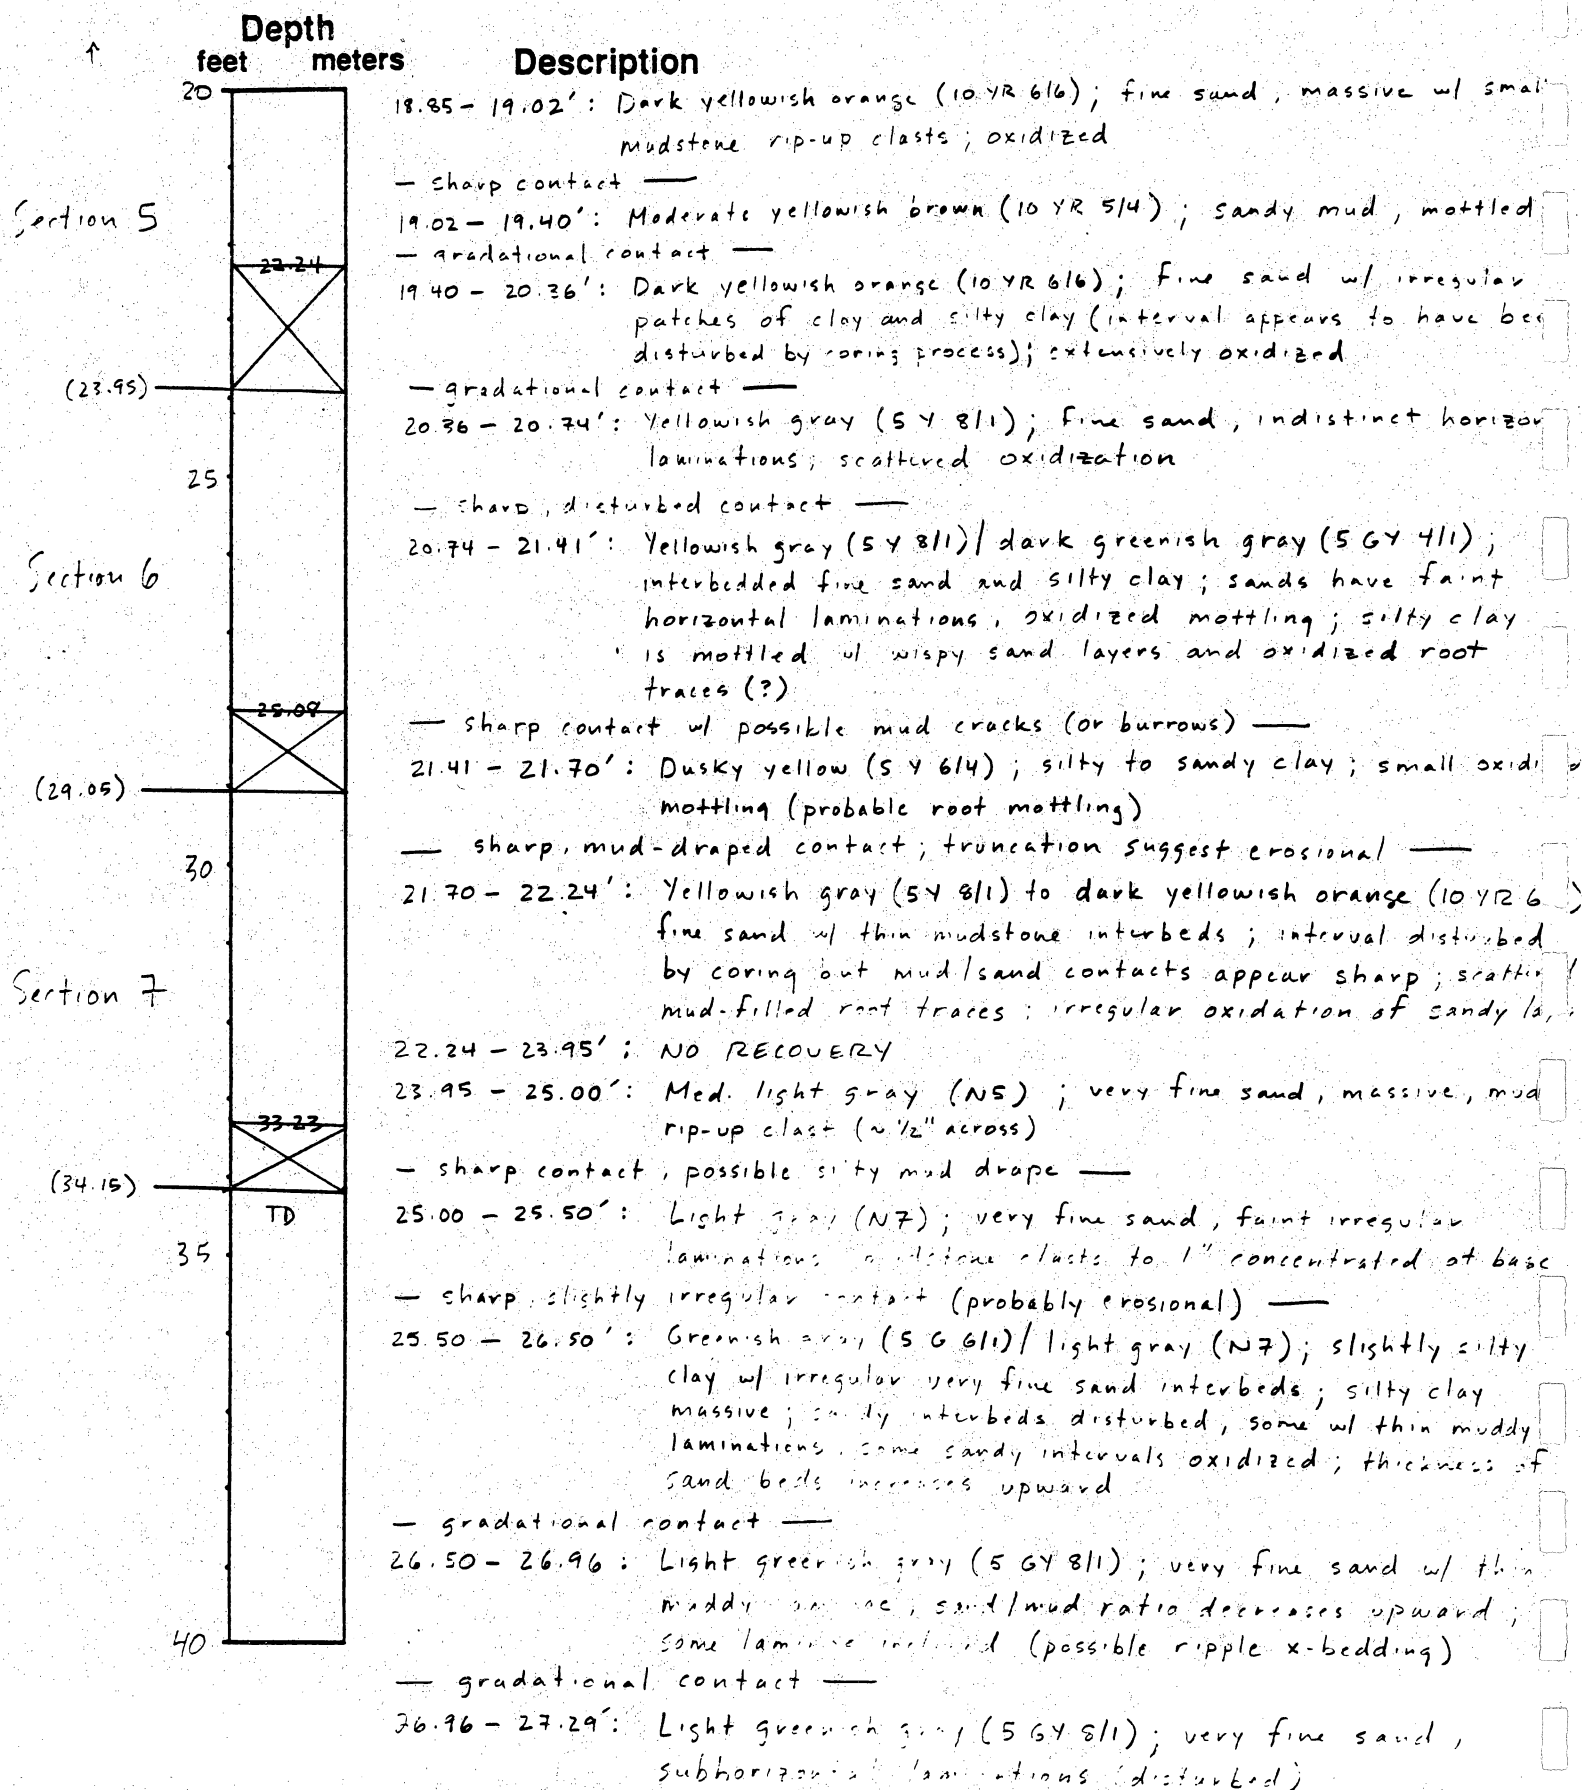 Depth
feet meters Description
↑
20
18.85 – 19.02' : Dark yellowish orange (10 YR 6/6) ; fine sand, massive w/
mudstone rip-up clasts ; oxidized
— sharp contact —
Section 5
19.02 – 19.40' : Moderate yellowish brown (10 YR 5/4) ; sandy mud, mottled
— gradational contact —
22.24
19.40 – 20.36' : Dark yellowish orange (10 YR 6/6) ; fine sand w/ irregular
patches of clay and silty clay (interval appears to have
disturbed by coring process) ; extensively oxidized
(23.95)
— gradational contact —
20.36 – 20.74' : Yellowish gray (5 Y 8/1) ; fine sand, indistinct
laminations ; scattered oxidization
25
— sharp, disturbed contact —
20.74 – 21.41' : Yellowish gray (5 Y 8/1) / dark greenish gray (5 GY 4/1) ;
Section 6
interbedded fine sand and silty clay ; sands have faint
horizontal laminations, oxidized mottling ; silty clay
is mottled w/ wispy sand layers and oxidized root
traces (?)
— sharp contact w/ possible mud cracks (or burrows) —
21.41 – 21.70' : Dusky yellow (5 Y 6/4) ; silty to sandy clay ; small
(29.05)
mottling (probable root mottling)
— sharp, mud-draped contact ; truncation suggest erosional —
30
21.70 – 22.24' : Yellowish gray (5Y 8/1) to dark yellowish orange (10 YR 6
fine sand w/ thin mudstone interbeds ; interval disturbed
by coring but mud/sand contacts appear sharp ;
Section 7
mud-filled root traces ; irregular oxidation of sandy
22.24 – 23.95' : NO RECOVERY
23.95 – 25.00' : Med. light gray (N5) ; very fine sand, massive, mud
33.23
rip-up clast (~ 1/2" across)
— sharp contact, possible silty mud drape —
(34.15)
TD
25.00 – 25.50' : Light gray (N7) ; very fine sand, faint irregular
35
laminations clasts to 1" concentrated at base
— sharp, slightly irregular contact (probably erosional) —
25.50 – 26.50' : Greenish gray (5 G 6/1) / light gray (N7) ; slightly silty
clay w/ irregular very fine sand interbeds ; silty clay
massive ; sandy interbeds disturbed, some w/ thin muddy
laminations, some sandy intervals oxidized ; thickness of
sand beds increases upward
— gradational contact —
26.50 – 26.96 : Light greenish gray (5 GY 8/1) ; very fine sand w/ thin
muddy ; sand/mud ratio decreases upward ;
40
some laminae inclined (possible ripple x-bedding)
— gradational contact —
26.96 – 27.29' : Light greenish gray (5 GY 8/1) ; very fine sand,
subhorizontal laminations (disturbed)